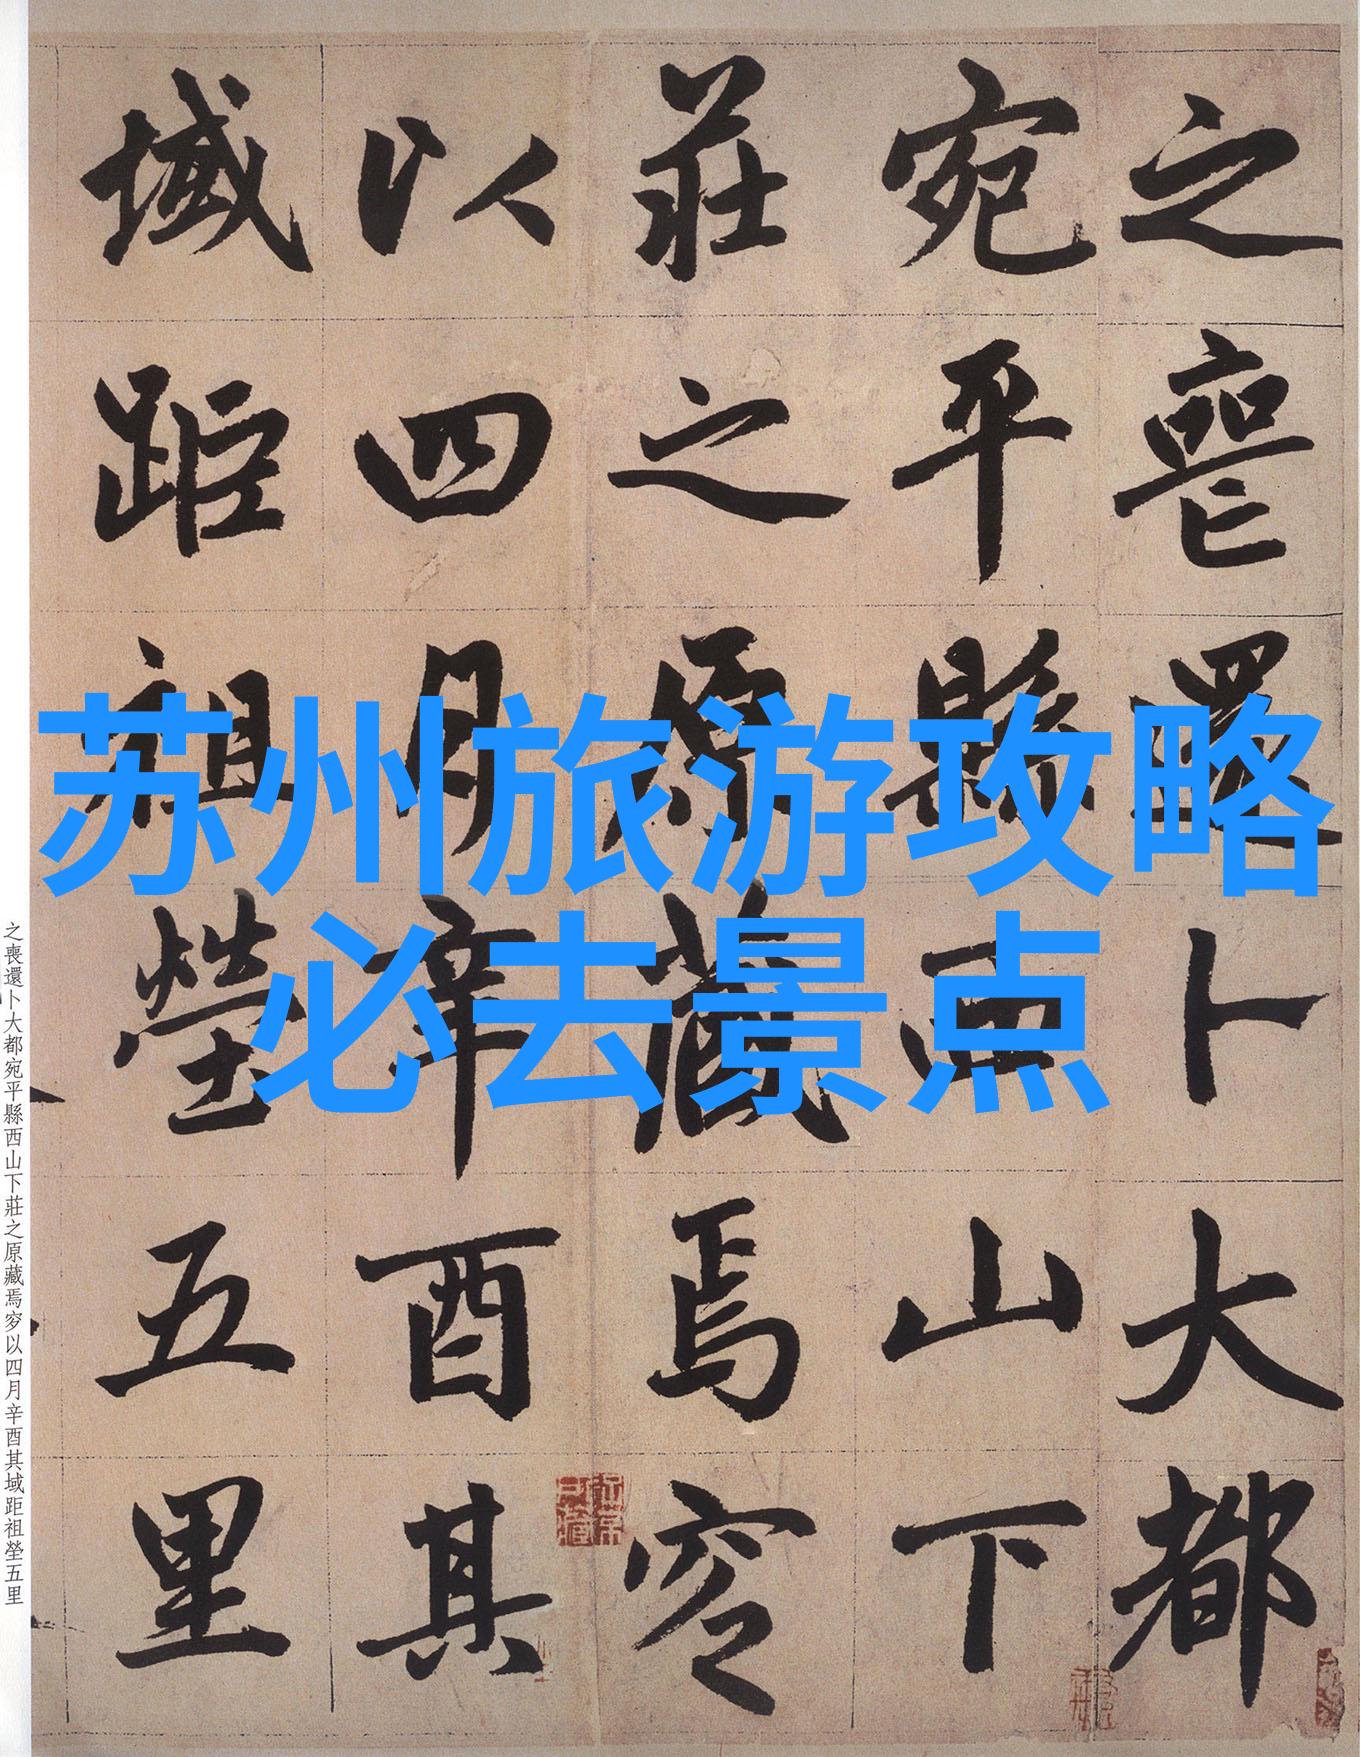 苏州旅游攻略
必去景点
之喪還卜大都
宛平縣西山下
莊之原藏焉窆
以四月辛酉其
域距祖塋五里
之喪還卜大都宛平縣西山下莊之原藏焉窆以四月辛酉其域距祖塋五里